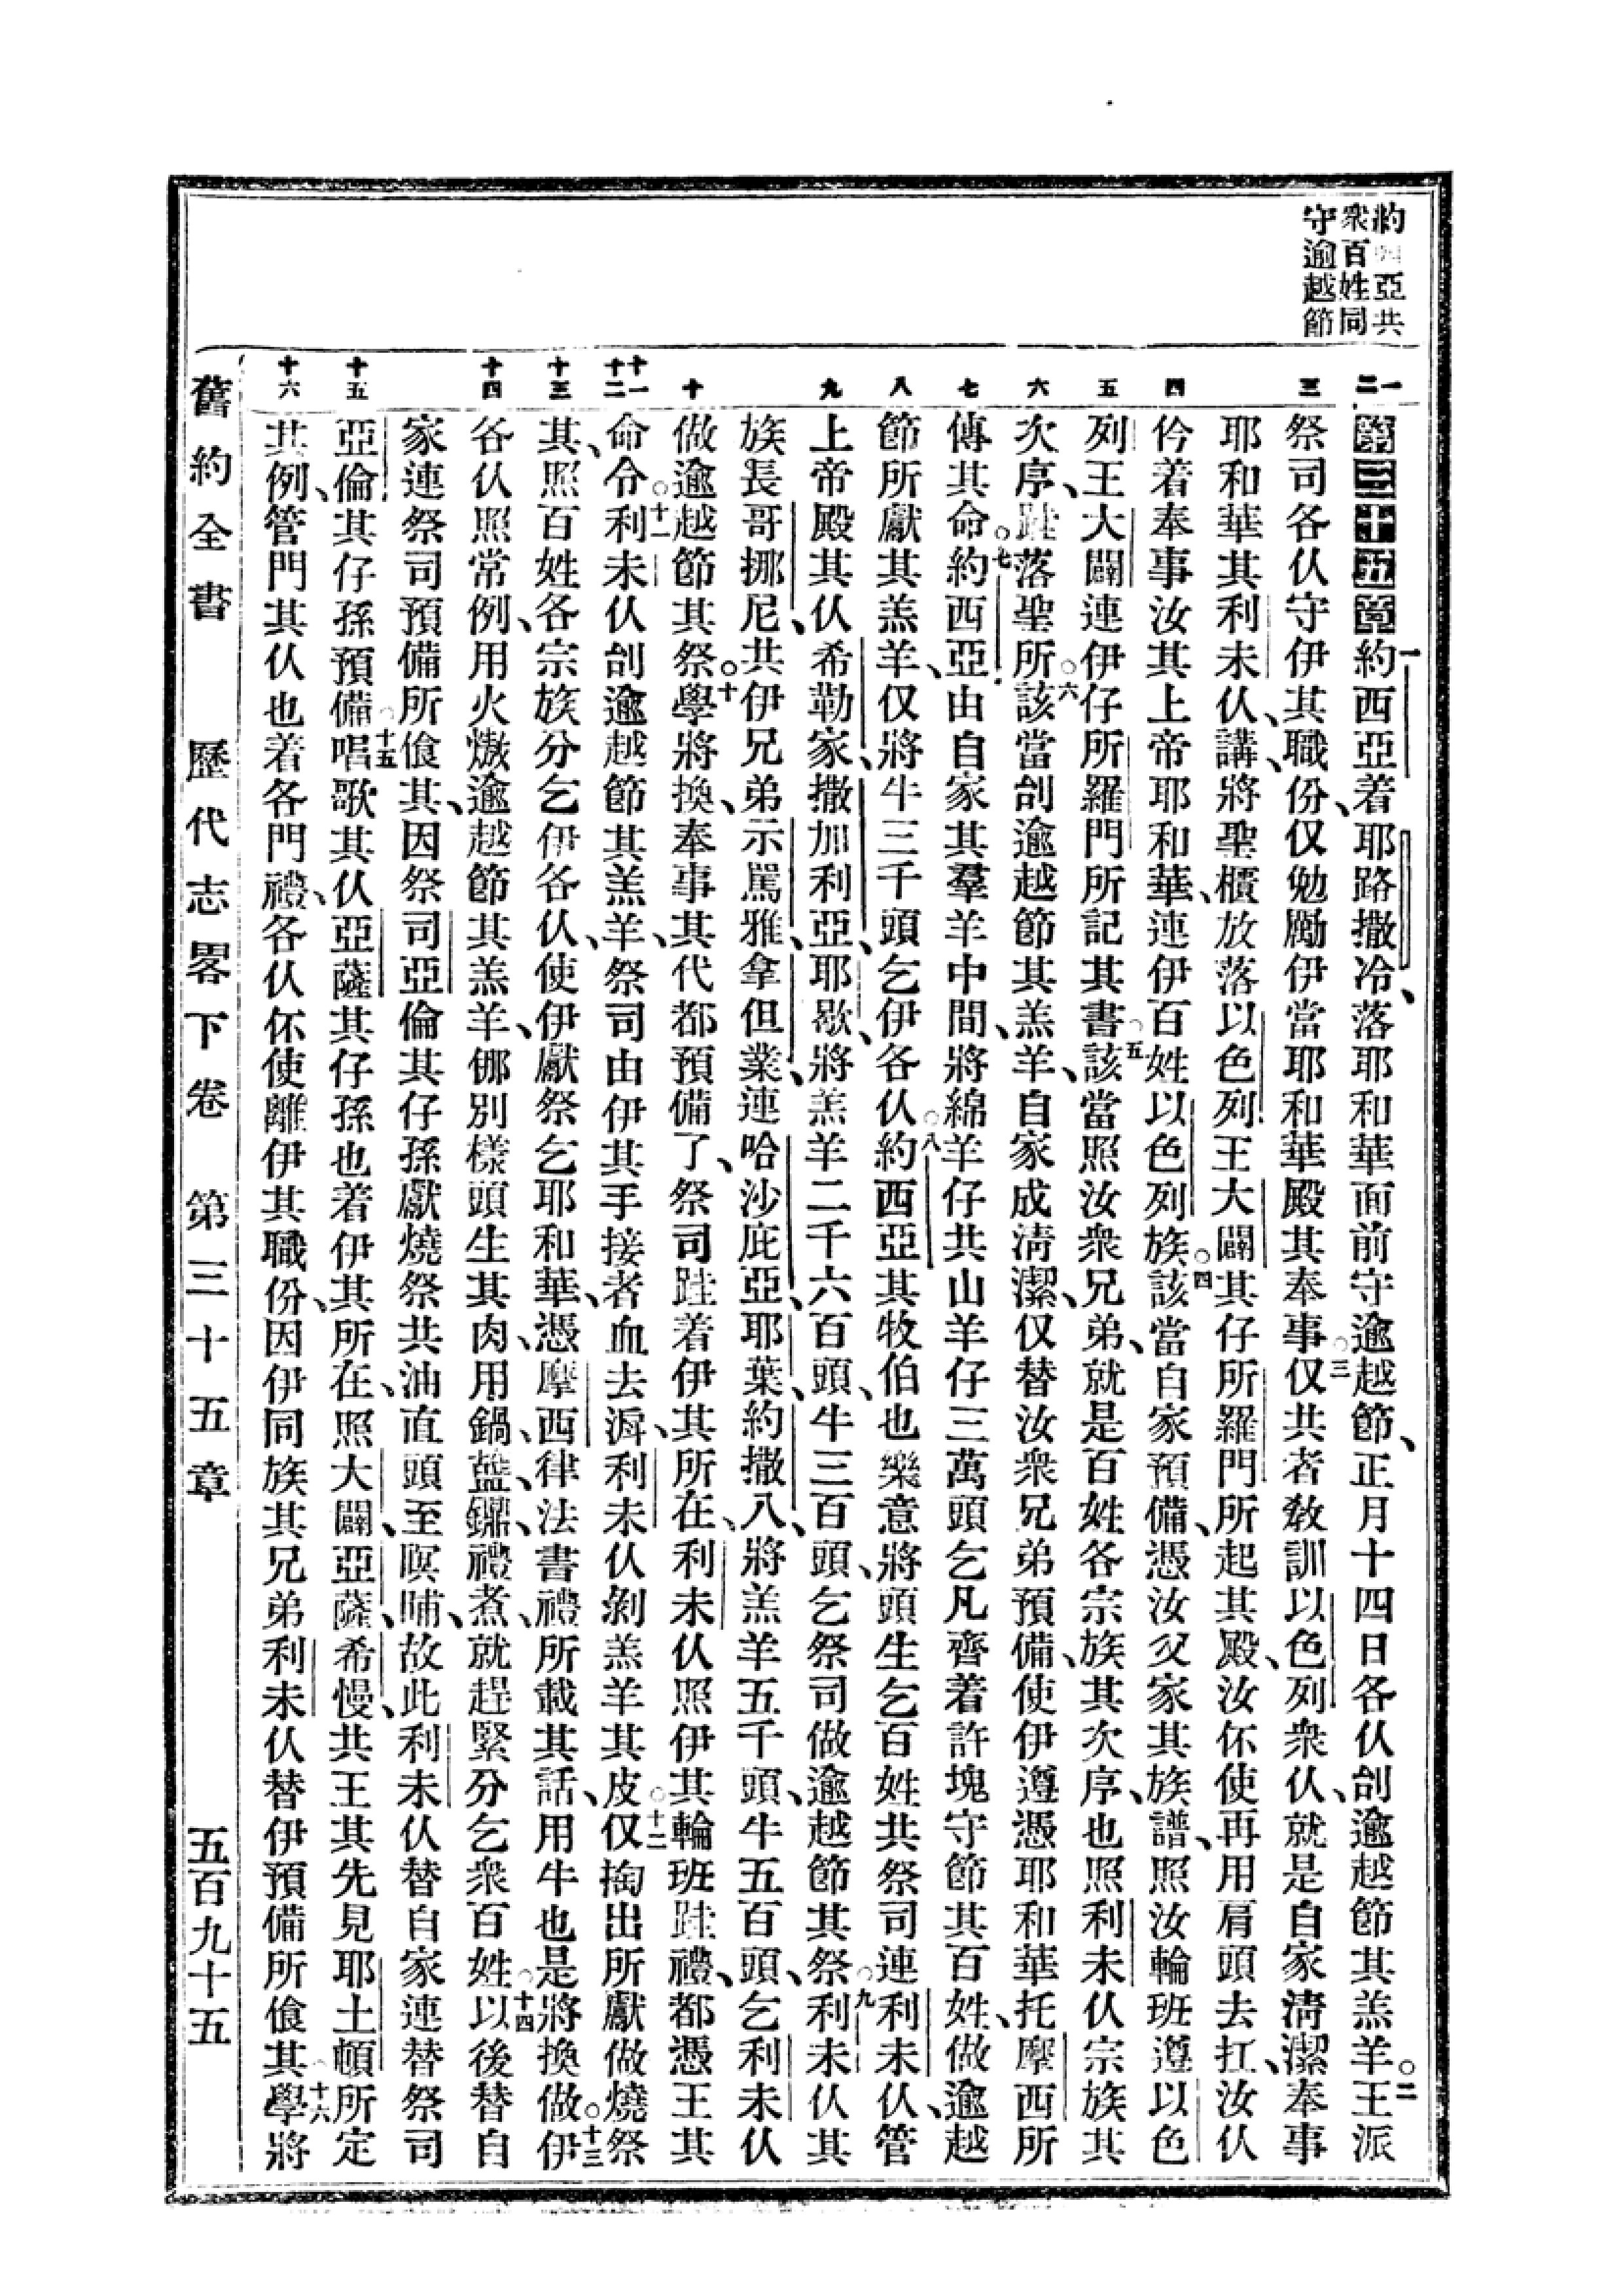 約西亞共
衆百姓同
守逾越節
一
二
三
四
五
六
七
八
九
十
十一
十二
十三
十四
十五
十六
第三十五章 一約西亞着耶路撒冷、落耶和華面前守逾越節、正月十四日各仈刣逾越節其羔羊。二王派
祭司各仈守伊其職份、仅勉勵伊當耶和華殿其奉事○三仅共者敎訓以色列衆仈、就是自家淸潔奉事
耶和華其利未仈、講、將聖櫃放落以色列王大闢其仔所羅門所起其殿、汝伓使再用肩頭去扛、汝仈
仱着奉事汝其上帝耶和華、連伊百姓以色列族。四該當自家預備、憑汝父家其族譜、照汝輪班遵以色
列王大闢連伊仔所羅門所記其書○五該當照汝衆兄弟、就是百姓各宗族其次序、也照利未仈宗族其
次序、跬落聖所○六該當刣逾越節其羔羊、自家成淸潔、仅替汝衆兄弟預備、使伊遵憑耶和華托摩西所
傳其命。七約西亞由自家其羣羊中間、將綿羊仔共山羊仔三萬頭乞凡齊着許塊守節其百姓、做逾越
節所獻其羔羊、仅將牛三千頭乞伊各仈○八約西亞其牧伯也樂意將頭生乞百姓共祭司連利未仈、管
上帝殿其仈希勒家、撒加利亞、耶歇、將羔羊二千六百頭、牛三百頭、乞祭司做逾越節其祭○九利未仈其
族長哥挪尼、共伊兄弟示罵雅、拿但業、連哈沙庇亞、耶葉、約撒八、將羔羊五千頭、牛五百頭、乞利未仈
做逾越節其祭。十學將換、奉事其代都預備了、祭司跬着伊其所在、利未仈照伊其輪班跬禮、都憑王其
命令○十一利未仈刣逾越節其羔羊、祭司由伊其手接者血去漘、利未仈剝羔羊其皮○十二仅掏出所獻做燒祭
其、照百姓各宗族分乞伊各仈、使伊獻祭乞耶和華、憑摩西律法書禮所載其話、用牛也是將換做○十三伊
各仈照常例、用火熓逾越節其羔羊、𠲥別樣頭生其肉、用鍋、盬、鑃、禮煮、就趕緊分乞衆百姓○十四以後替自
家連祭司預備所飡其、因祭司亞倫其仔孫獻燒祭共油直頭至暝晡、故此利未仈替自家連替祭司
亞倫其仔孫預備○十五唱歌其仈亞薩其仔孫也着伊其所在、照大闢、亞薩、希慢、共王其先見耶土頓所定
其例、管門其仈也着各門禮、各仈伓使離伊其職份、因伊同族其兄弟利未仈替伊預備所飡其○十六學將
舊約全書 歷代志畧下卷 第三十五章 五百九十五